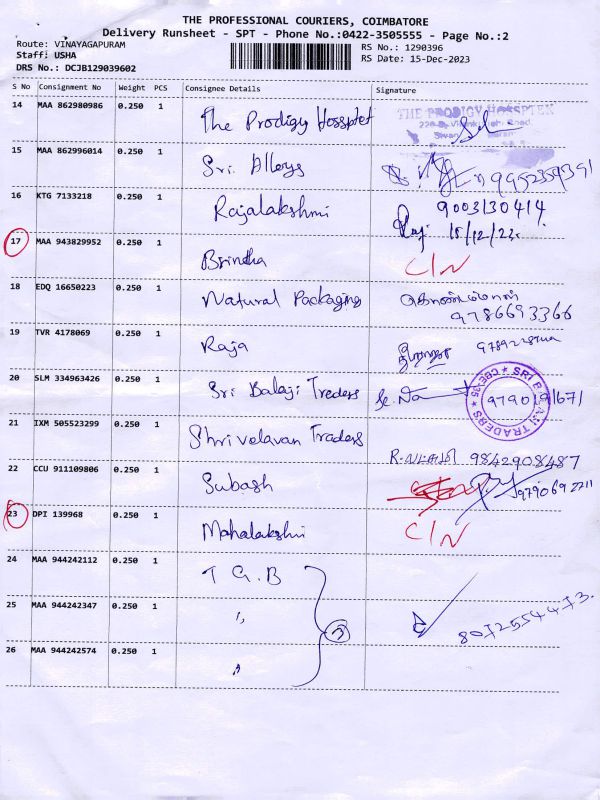 THE PROFESSIONAL COURIERS, COIMBATORE
Delivery Runsheet - SPT - Phone No.:0422-3505555 - Page No.:2
Route: VINAYAGAPURAM
Staff: USHA
DRS No.: DCJB129039602
RS No.: 1290396
RS Date: 15-Dec-2023
S No Consignment No Weight PCS Consignee Details Signature
14 MAA 862980986 0.250 1 The Prodigy Hossptet
THE PRODIGY HOSSPTEK
15 MAA 862996014 0.250 1 Sri Alloys 9952359391
16 KTG 7133218 0.250 1 Rajalakshmi 9003130414
Raj. 15/12/23.
17 MAA 943829952 0.250 1 Brindha C/N
18 EDQ 16650223 0.250 1 Natural Packaging
9786693366
19 TVR 4178069 0.250 1 Raja
20 SLM 334963426 0.250 1 Sri Balaji Treders 9790191671
SRI BALAJI TRADERS * CBE-35 *
21 IXM 505523299 0.250 1 Shri velavan Traders 9842908487
22 CCU 911109806 0.250 1 Subash 9790692211
23 DPI 139968 0.250 1 Mahalakshmi C/N
24 MAA 944242112 0.250 1 T G.B
25 MAA 944242347 0.250 1 ,, 3 8072554473.
26 MAA 944242574 0.250 1 ,,